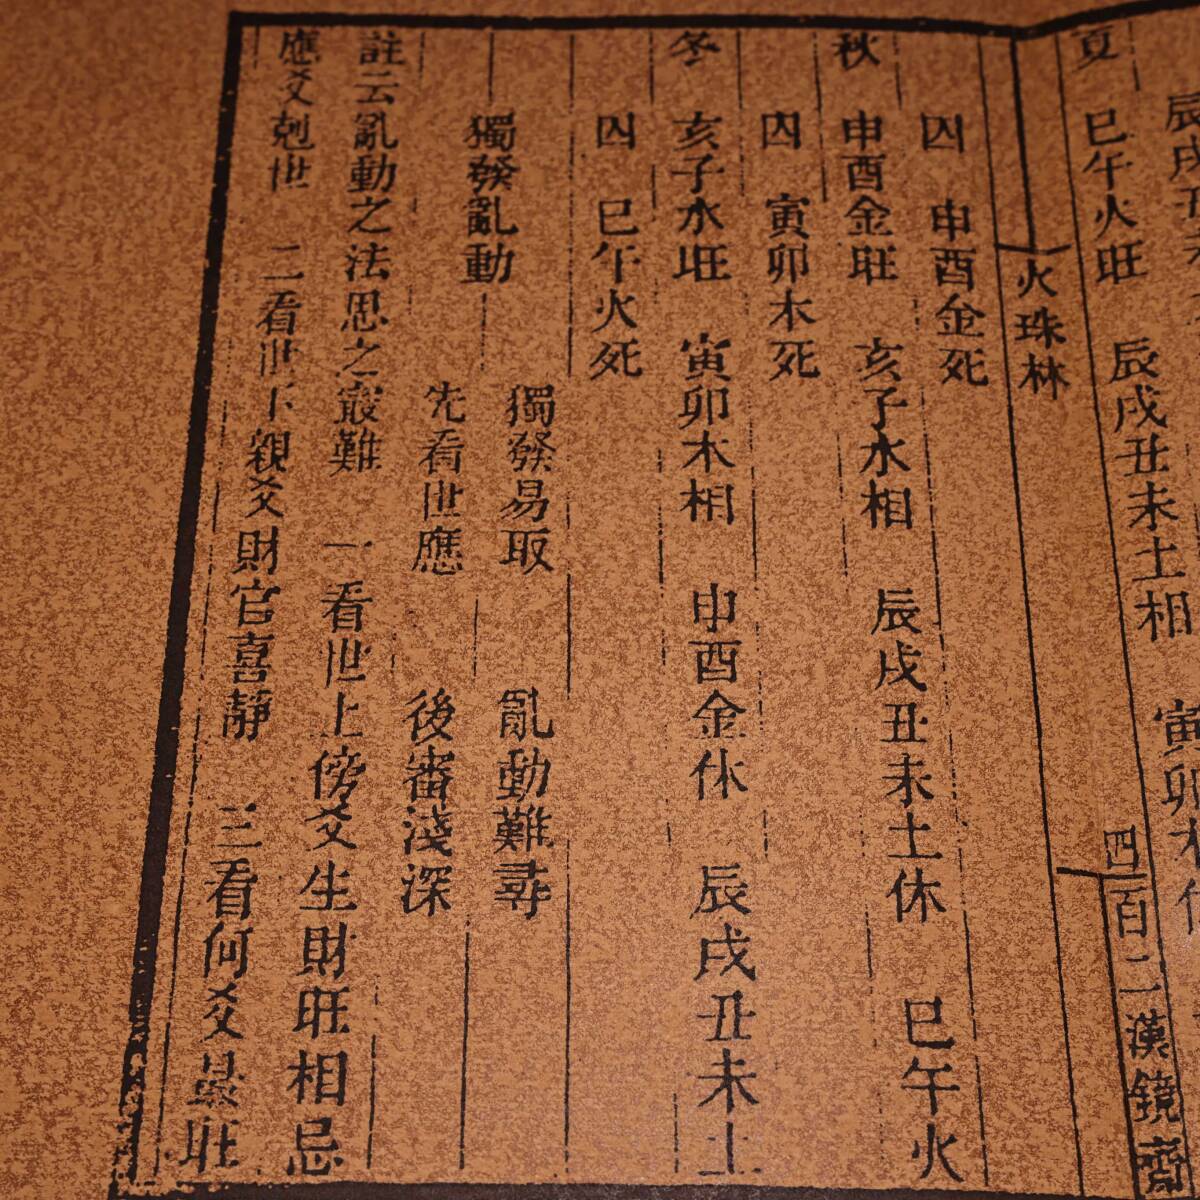 辰戌丑未
寅卯木休
夏 巳午火旺 辰戌丑未土相
火珠林
四百二漢鏡齋
囚 申酉金死
秋 申酉金旺 亥子水相 辰戌丑未土休 巳午火
囚 寅卯木死
冬 亥子水旺 寅卯木相 申酉金休 辰戌丑未土
囚 巳午火死
獨發易取 亂動難尋
獨發亂動
先看世應 後審淺深
註云亂動之法思之寂難 一看世上傍爻生財旺相忌
應爻剋世 二看世下親爻財官喜靜 三看何爻最旺